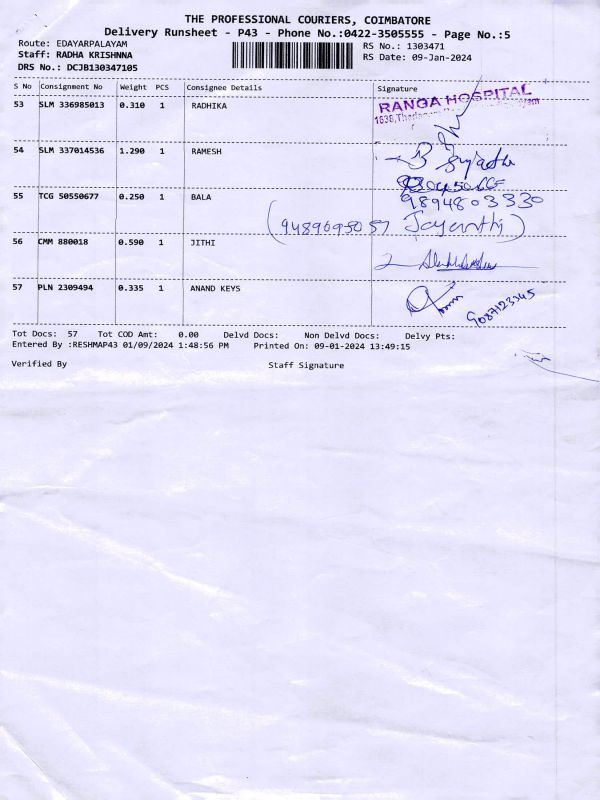 THE PROFESSIONAL COURIERS, COIMBATORE
Delivery Runsheet - P43 - Phone No.:0422-3505555 - Page No.:5
Route: EDAYARPALAYAM
RS No.: 1303471
Staff: RADHA KRISHNNA
RS Date: 09-Jan-2024
DRS No.: DCJB130347105
S No Consignment No Weight PCS Consignee Details Signature
53 SLM 336985013 0.310 1 RADHIKA
RANGA HOSPITAL
54 SLM 337014536 1.290 1 RAMESH
55 TCG 50550677 0.250 1 BALA
9894803330
(9489095057 Jayanthi)
56 CMM 880018 0.590 1 JITHI
57 PLN 2309494 0.335 1 ANAND KEYS
9087123945
Tot Docs: 57 Tot COD Amt: 0.00 Delvd Docs: Non Delvd Docs: Delvy Pts:
Entered By :RESHMAP43 01/09/2024 1:48:56 PM Printed On: 09-01-2024 13:49:15
Verified By Staff Signature